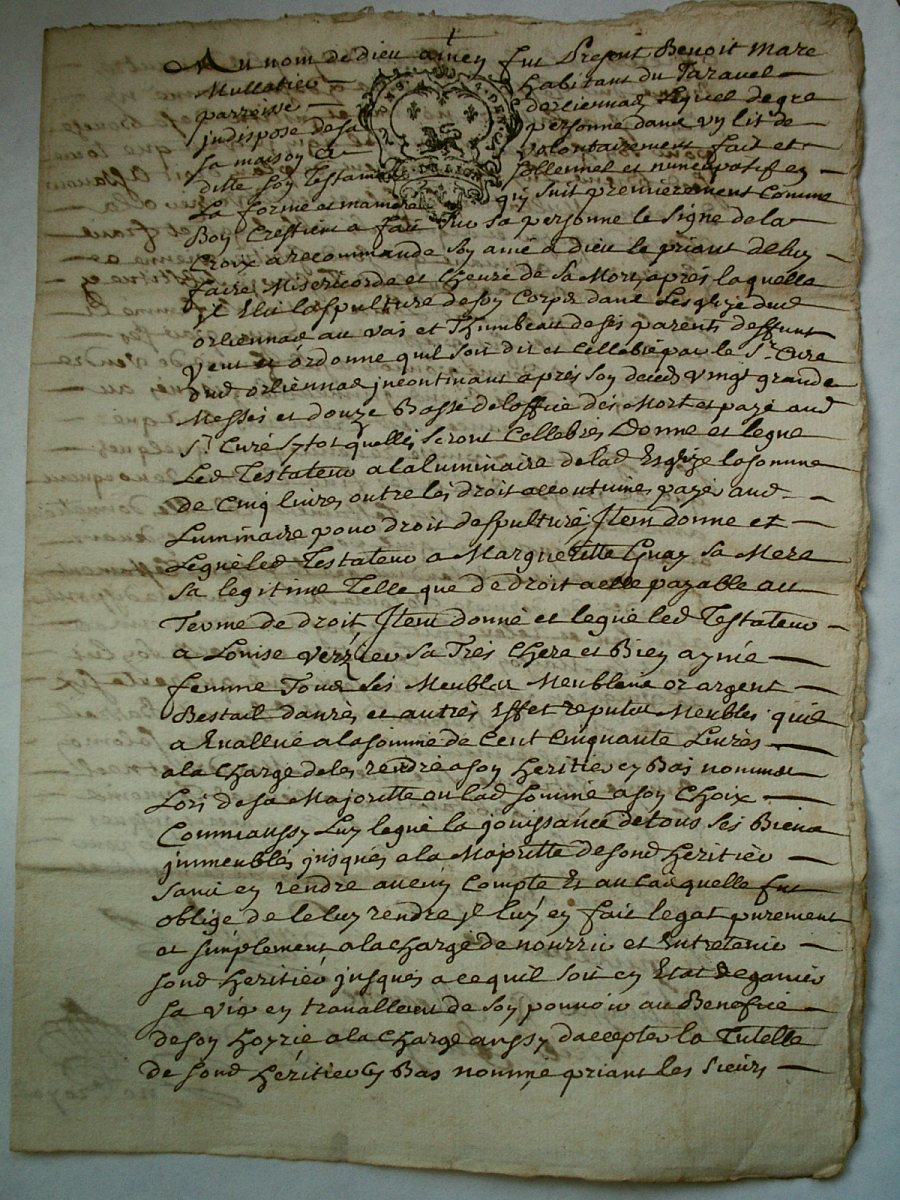 Au nom de dieu amen fut Present Benoit Mare
Mullatier — habitant du Taravel —
parroisse — dorliennas, Lequel de gre
jndisposé de sa personne dans uy lit de
sa maisoy a — volontairement fait et —
ditte soy Testament sollennel et nuncupatif ey —
La forme et maniere quj suit premierement Comme
Boy Crestien a fait sur sa personne le signe de la —
Croix a recommande soy ame a dieu le priant de luy —
faire Misericorde et Lheure de sa Mort, apres laquelle
jl Elit la spulture de soy Corps dans Lesglize dud
orliennas au vas et Thumbeau de ses parents deffunt
Veut et ordonne quil soit dit et Cellebré par le Sr. Cure
dud orliennas jncontinant apres soy deceds vingt grande
Messes et douze Basse de loffice des Mort et payé aud
Sr. Curé sytot quelles seront Cellebres Donne et legue
Led Testateur a la luminaire de lad Esglize la somme
de Cinq livres outre les droit accoutumes payés aud —
Luminaire pour droit despulture, Jtem donne et —
Legue led Testateur a Margueritte Guay sa Mere
sa legitime Telle que de droit a elle payable au
Terme de droit Jtem donné et legué led Testateur —
a Louise verzier sa Tres chere et Biey aymée —
femme Tous ses Meubles Meublans or argent —
Bestail danrés et autres Effet reputés Meubles quil
a Evallué a la somme de Cent Cinquante Livres —
a la charge de les rendre a soy heritier ey Bas nommé
Lors de sa Majoritte ou lad somme a soy Choix —
Comme aussy Luy legue la jouissance de tous ses Biens
jmmeubles jusques a la Majoritte de sond heritier —
sans ey rendre aucuy Compte Et au Cas quelle fut
obligé de le luy rendre jl luy ey fait legat purement
et simplement, a la charge de nourrir et Entretenir —
sond heritier jusques a ce quil soit ey Etat de gagner
sa vie ey travaillant de soy pouvoir au Benefice
de soy hoyrie a la Charge aussy daccepter la Tutelle
de sond heritier ey Bas nommé priant les sieurs —